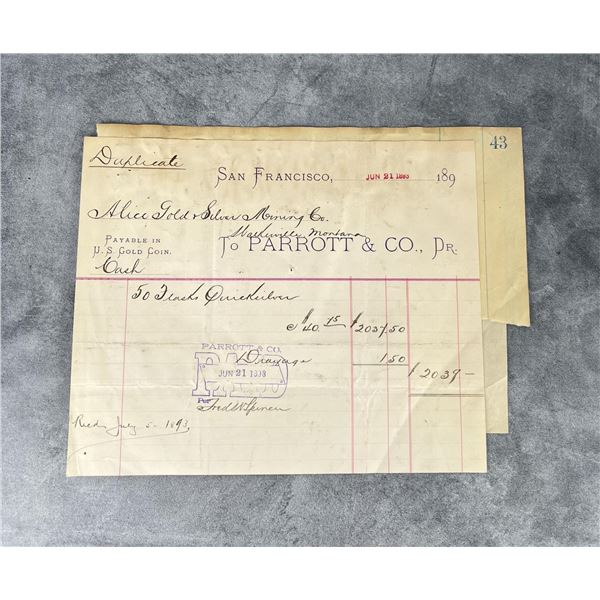 43
Duplicate
SAN FRANCISCO, JUN 21 1893 189
Alice Gold & Silver Mining Co.
Walkerville Montana
PAYABLE IN
U.S. GOLD COIN.
TO PARROTT & CO., DR.
Cash
50 Flasks Quicksilver
@ $40.75 $2037.50
Drayage 1.50
$2039 —
PARROTT & CO.
PAID
JUN 21 1893
Per
Fred W
Recd July 5 - 1893